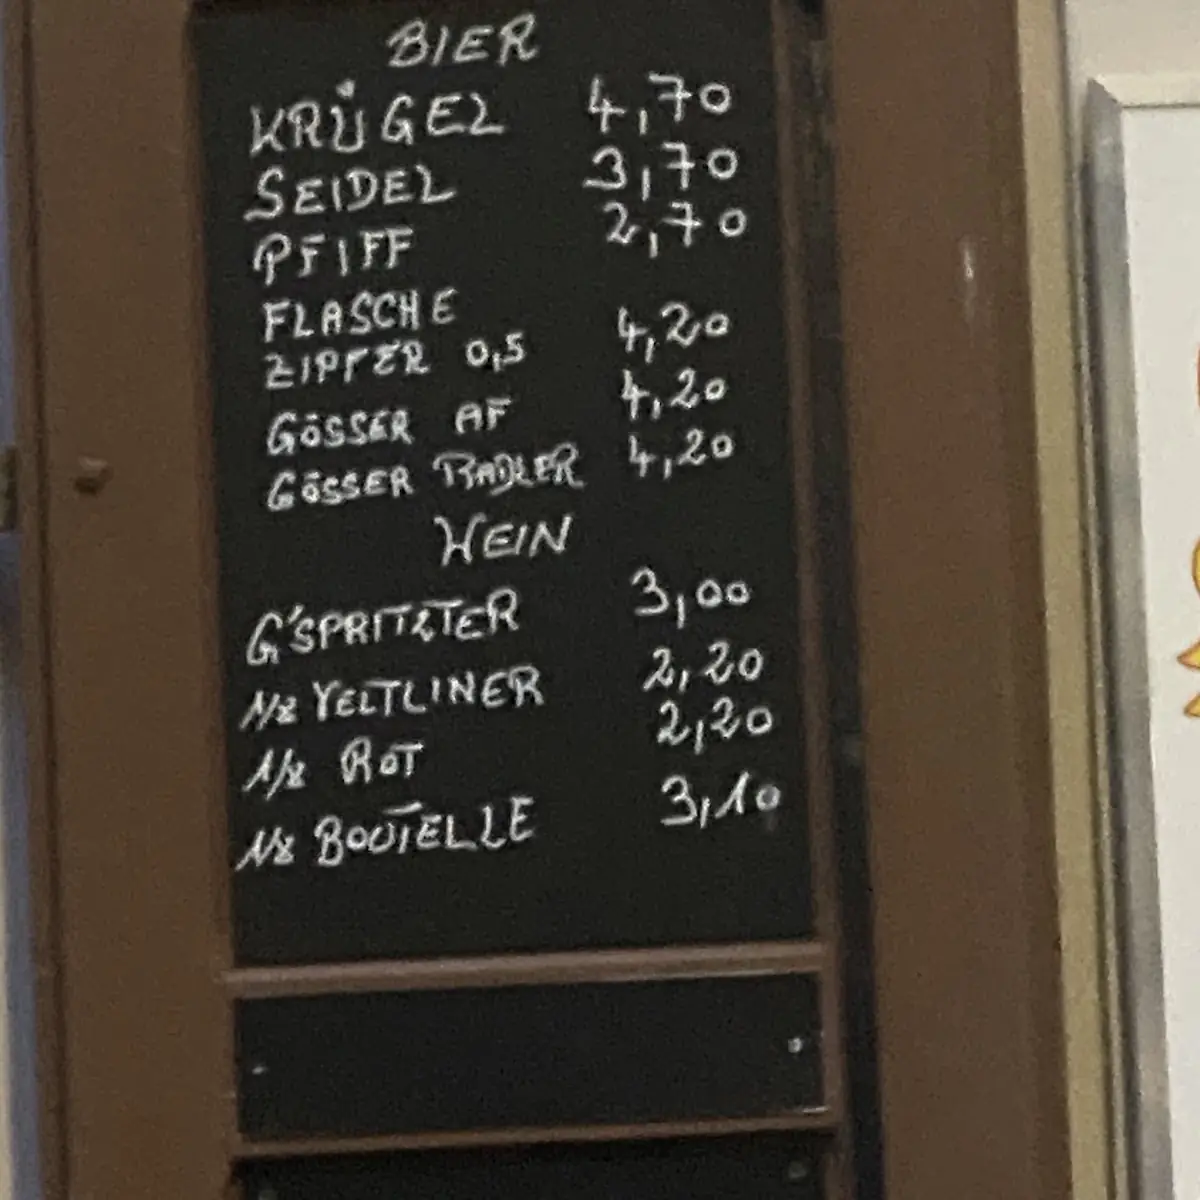 BIER
KRÜGEL 4,70
SEIDEL 3,70
PFIFF 2,70
FLASCHE
ZIPFER 0,5 4,20
GÖSSER AF 4,20
GÖSSER RADLER 4,20
WEIN
G'SPRITZTER 3,00
1/8 VELTLINER 2,20
1/8 ROT 2,20
1/8 BOUTELLE 3,10